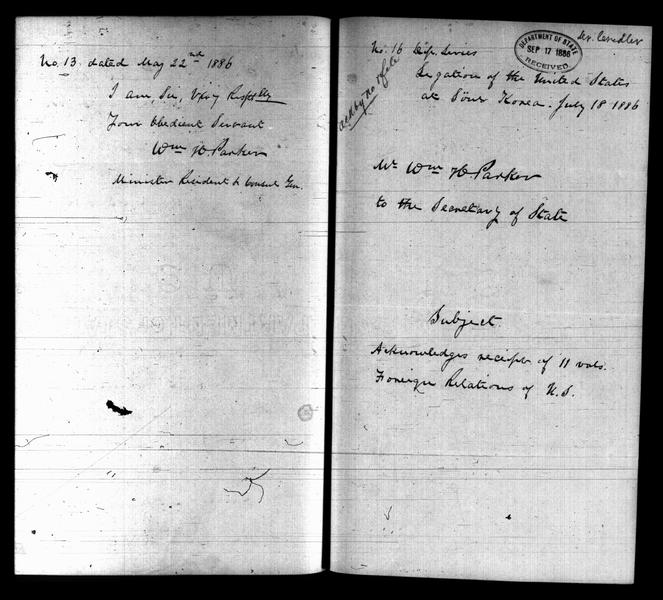 No. 13 dated May 22nd 1886
I am, Sir, Very Respctly
Your Obedient Servant
Wm H. Parker
Minister Resident & Consul Gen.
No. 16 Dip. Series
Legation of the United States
at Söul Korea. July 18 1886
DEPARTMENT OF STATE
SEP 17 1886
RECEIVED
ackd by no of date
Mr Wm H. Parker
to the Secretary of State
Subject.
Acknowledges receipt of 11 vols.
Foreign Relations of U.S.